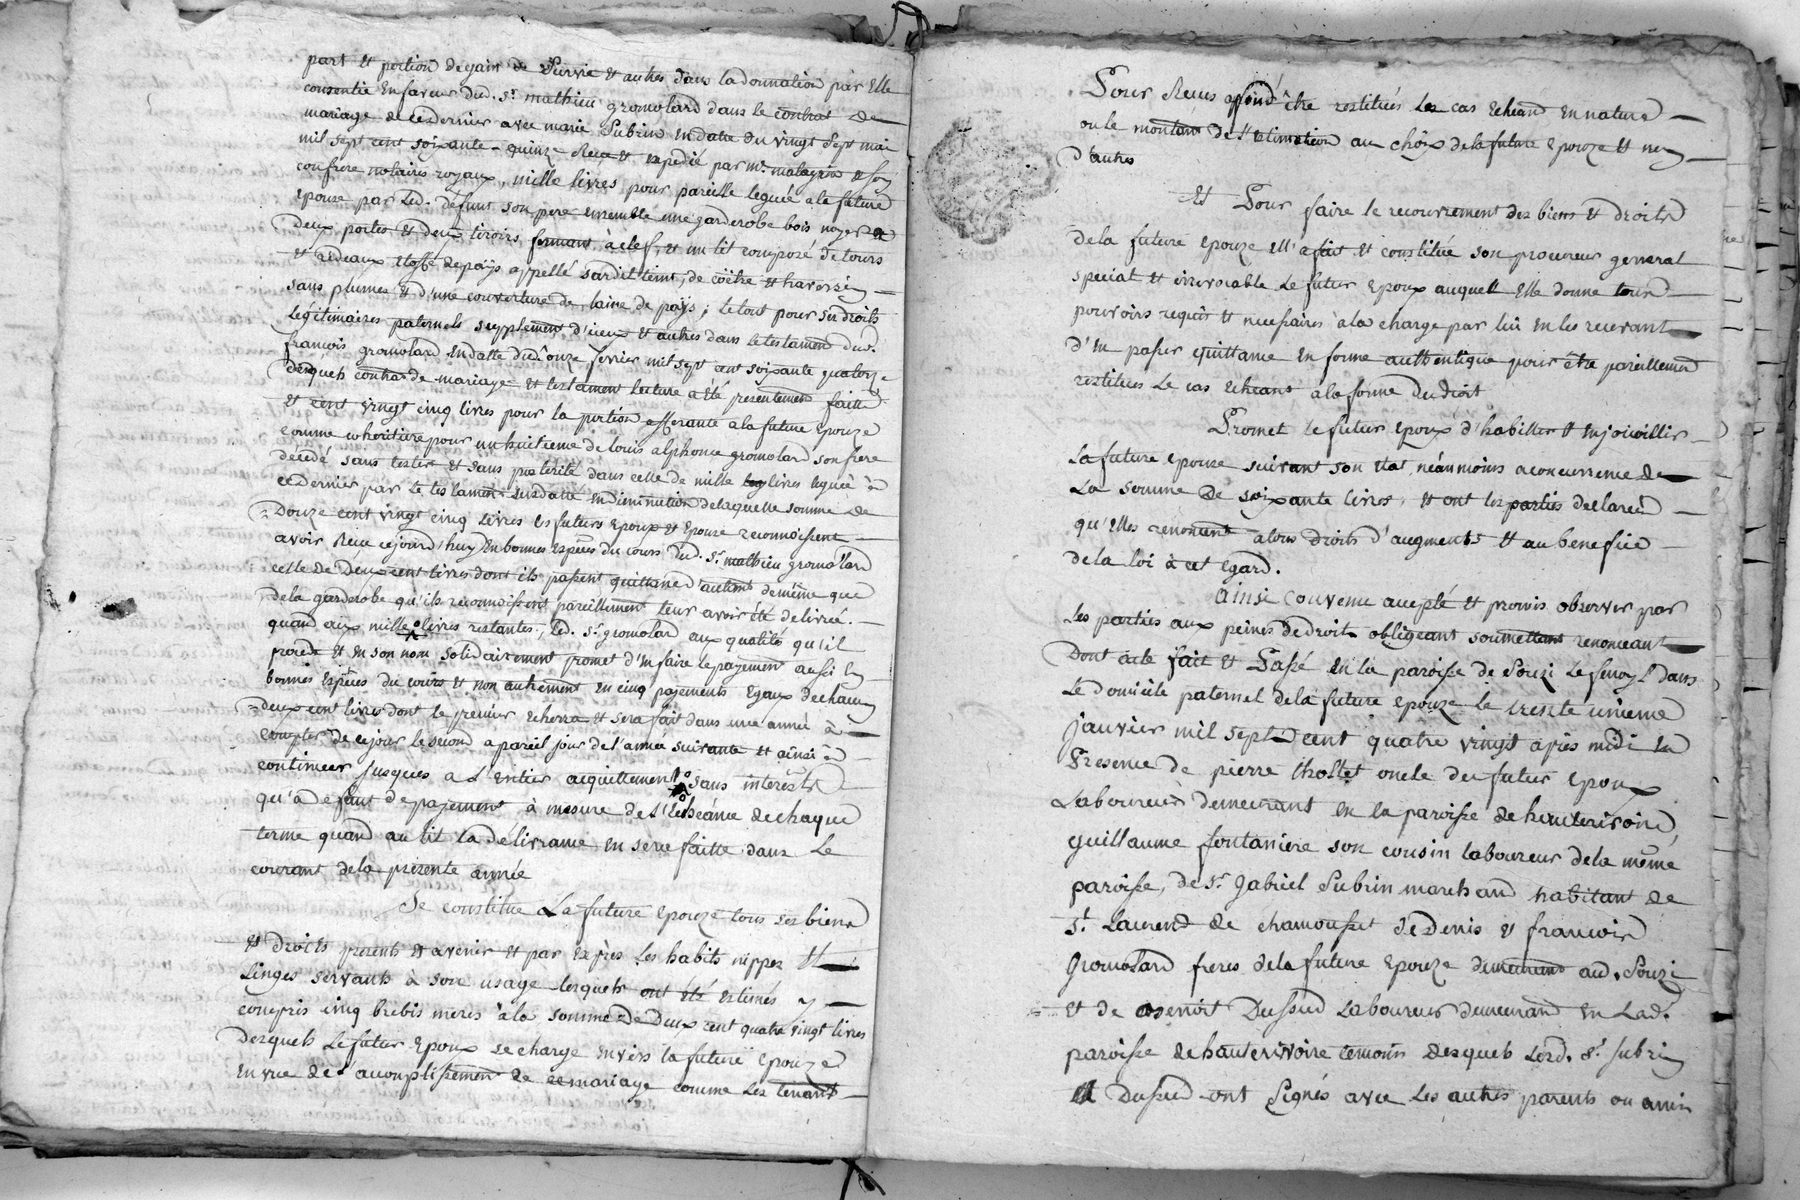 part et portion de gain de survie et autres dans la donnation par elle
consentie en faveur dud. sr. mathieu gromolard dans le contrat de
mariage de ce dernier avec marie Subrin en datte du vingt sept mai
mil sept cent soixante-quinze Reçu et expedié par me. et son
confrere notaires royaux, mille livres pour pareille leguée a la future
epouse par led. défunt son pere ensemble une garderobe bois noyer a
deux portes et deux tiroirs fermant à clef, et un lit composé de tours
et rideaux etoffe de pays appellé sardit teint, de coëtre et
sans plumes et d'une couverture de laine de pays; le tout pour ses droits
légitimaires paternels supplement d'iceux et autres dans le testament dud.
françois gromolard en datte du onze fevrier mil sept cent soixante quatorze
desquels contrat de mariage et testament lecture a été presentement faitte
et cent vingt cinq livres pour la portion afferante a la future epouze
comme coheritiere pour un huitieme de louis alphonce gromolard son frere
décédé sans tester et sans postérité dans celle de mille livres leguée à
ce dernier par le testament susdatté en diminution de laquelle somme de
Douze cent vingt cinq livres les futurs epoux et epouse reconnoissent
avoir Reçu cejourd'huy en bonnes especes du cours dud. sr. mathieu gromolard
celle de deux cent livres dont ils passent quittance d'autant de même que
de la garderobe qu'ils reconnoissent pareillement leur avoir été délivrée.
quand aux mille livres restantes, led. sr. gromolard aux qualités qu'il
procede et en son nom solidairement promet d'en faire le payement aussi en
bonnes especes du cours et non autrement en cinq payements egaux de chacun
deux cent livres dont le premier echerra et sera fait dans une année à
compter de ce jour le second a pareil jour de l'année suivante et ainsi à
continuer jusques a l'entier acquittement sans interêts
qu'à défaut de payement à mesure de l'echéance de chaque
terme quand au lit la délivrance en sera faitte dans le
courant de la présente année
Se constitue La future epouze tous ses biens
et droits presents et avenir et par exprès les habits nippes et
Linges servants à son usage lesquels ont été estimés y
compris cinq brebis meres à la somme de Deux cent quatre vingt livres
Desquels Le futur epoux se charge envers la future epouze
en vue de l'acomplissement de ce mariage comme les tenant
Pour Reçus affin d'être restitués le cas echeand en nature
ou le montant de l'estimation au choix de la future epouze et non
d'autres
Et Pour faire le recouvrement des biens et droits
de la future epouze ell'a fait et constitué son procureur general
special et irrevocable le futur epoux auquell elle donne tous
pouvoirs requis et necessaires à la charge par lui en les recevant
d'en passer quittance en forme authentique pour être pareillement
restitués le cas echeant à la forme du droit
Promet le futur epoux d'habiller et enjoïailler
La future epouse suivant son etat neanmoins a concurrence de
La somme De soixante livres, et ont les parties declaré
qu'elles renoncent a tous droits d'augments et au benefice
de la loi à cet egard.
Ainsi convenu accepté et promis observer par
les parties aux peines de droit obligeant soumettant renonceant
Dont acte fait et Passé en la paroisse de Souzi dans
le domicile paternel de la future epouze le trente unieme
janvier mil sept cent quatre vingt après midi en
Presence de pierre thollet oncle du futur epoux
Laboureur demeurant en la paroisse de hauterivoire,
guillaume fontaniere son cousin laboureur de la même
paroisse, de sr. gabriel Subrin marchand habitant de
st. Laurend de chamousset de Denis et francois
gromolard freres de la future epouze demeurant aud. Souzi
et de Benoit Dussud Laboureur demeurand en lad.
paroisse de hauterivoire temoins desquels lesd. sr. subrin
et Dussud ont signés avec les autres parents ou amis